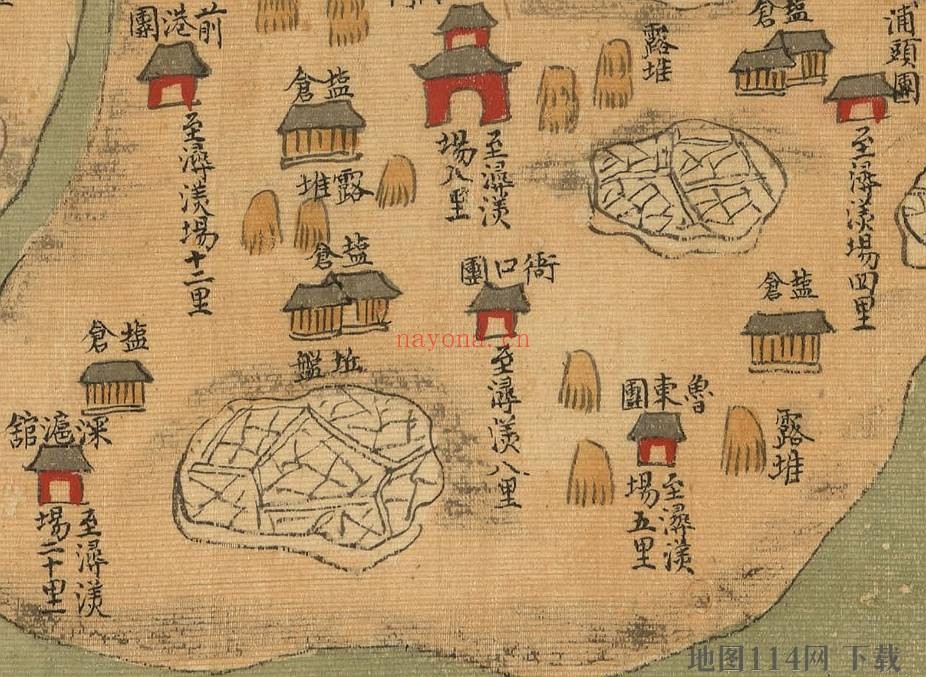 浦頭團
至潯渼場四里
塩倉
露堆
至潯渼
場八里
前港團
至潯渼場十二里
塩倉
露堆
塩倉
堆
塩倉
衙口團
至潯渼八里
魯東團
至潯渼
場五里
露堆
塩倉
深滬舘
至潯渼
場二十里
nayona.cn
地图114网 下载